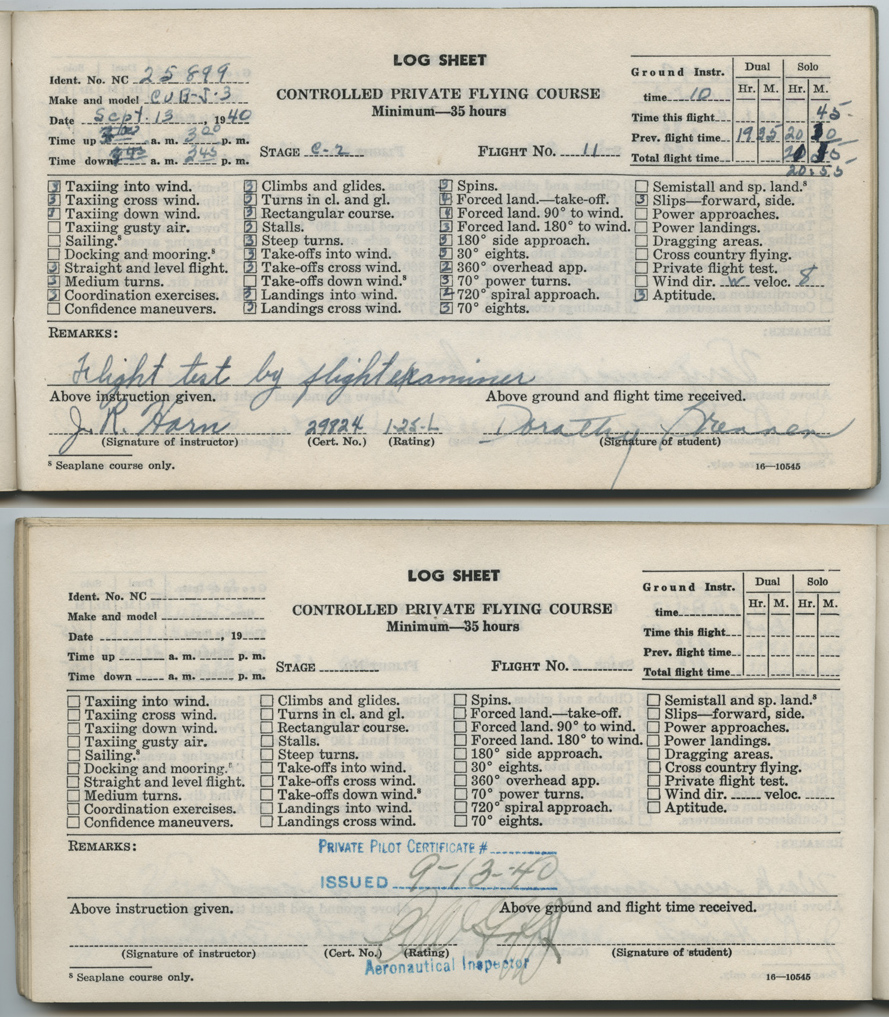 LOG SHEET
CONTROLLED PRIVATE FLYING COURSE
Minimum—35 hours
Ident. No. NC 25899
Make and model CUB-J-3
Date Sept. 13, 1940
Time up a. m. 300 p. m.
Time down a. m. 345 p. m.
STAGE C-2 FLIGHT No. 11
Ground Instr. time 10
Dual Solo
Hr. M. Hr. M.
Time this flight 45
Prev. flight time 19 35 20 10
Total flight time
20:55
3 Taxiing into wind.
3 Taxiing cross wind.
3 Taxiing down wind.
Taxiing gusty air.
Sailing.ˢ
Docking and mooring.ˢ
3 Straight and level flight.
3 Medium turns.
3 Coordination exercises.
Confidence maneuvers.
3 Climbs and glides.
3 Turns in cl. and gl.
3 Rectangular course.
3 Stalls.
3 Steep turns.
3 Take-offs into wind.
3 Take-offs cross wind.
Take-offs down wind.ˢ
3 Landings into wind.
3 Landings cross wind.
3 Spins.
4 Forced land.—take-off.
4 Forced land. 90° to wind.
3 Forced land. 180° to wind.
3 180° side approach.
3 30° eights.
2 360° overhead app.
3 70° power turns.
2 720° spiral approach.
3 70° eights.
Semistall and sp. land.ˢ
3 Slips—forward, side.
Power approaches.
Power landings.
Dragging areas.
Cross country flying.
Private flight test.
Wind dir. W veloc. 8
3 Aptitude.
REMARKS:
Flight test by flight examiner
Above instruction given. Above ground and flight time received.
J. R. Horn 29824 1-25-L Dorothy Brennen
(Signature of instructor) (Cert. No.) (Rating) (Signature of student)
ˢ Seaplane course only. 16—10545
LOG SHEET
CONTROLLED PRIVATE FLYING COURSE
Minimum—35 hours
Ident. No. NC
Make and model
Date , 19
Time up a. m. p. m.
Time down a. m. p. m.
STAGE FLIGHT No.
Ground Instr. time
Dual Solo
Hr. M. Hr. M.
Time this flight
Prev. flight time
Total flight time
Taxiing into wind.
Taxiing cross wind.
Taxiing down wind.
Taxiing gusty air.
Sailing.ˢ
Docking and mooring.ˢ
Straight and level flight.
Medium turns.
Coordination exercises.
Confidence maneuvers.
Climbs and glides.
Turns in cl. and gl.
Rectangular course.
Stalls.
Steep turns.
Take-offs into wind.
Take-offs cross wind.
Take-offs down wind.ˢ
Landings into wind.
Landings cross wind.
Spins.
Forced land.—take-off.
Forced land. 90° to wind.
Forced land. 180° to wind.
180° side approach.
30° eights.
360° overhead app.
70° power turns.
720° spiral approach.
70° eights.
Semistall and sp. land.ˢ
Slips—forward, side.
Power approaches.
Power landings.
Dragging areas.
Cross country flying.
Private flight test.
Wind dir. veloc.
Aptitude.
REMARKS:
PRIVATE PILOT CERTIFICATE #
ISSUED 9-13-40
Above instruction given. Above ground and flight time received.
(Signature of instructor) (Cert. No.) (Rating) (Signature of student)
Aeronautical Inspector
ˢ Seaplane course only. 16—10545